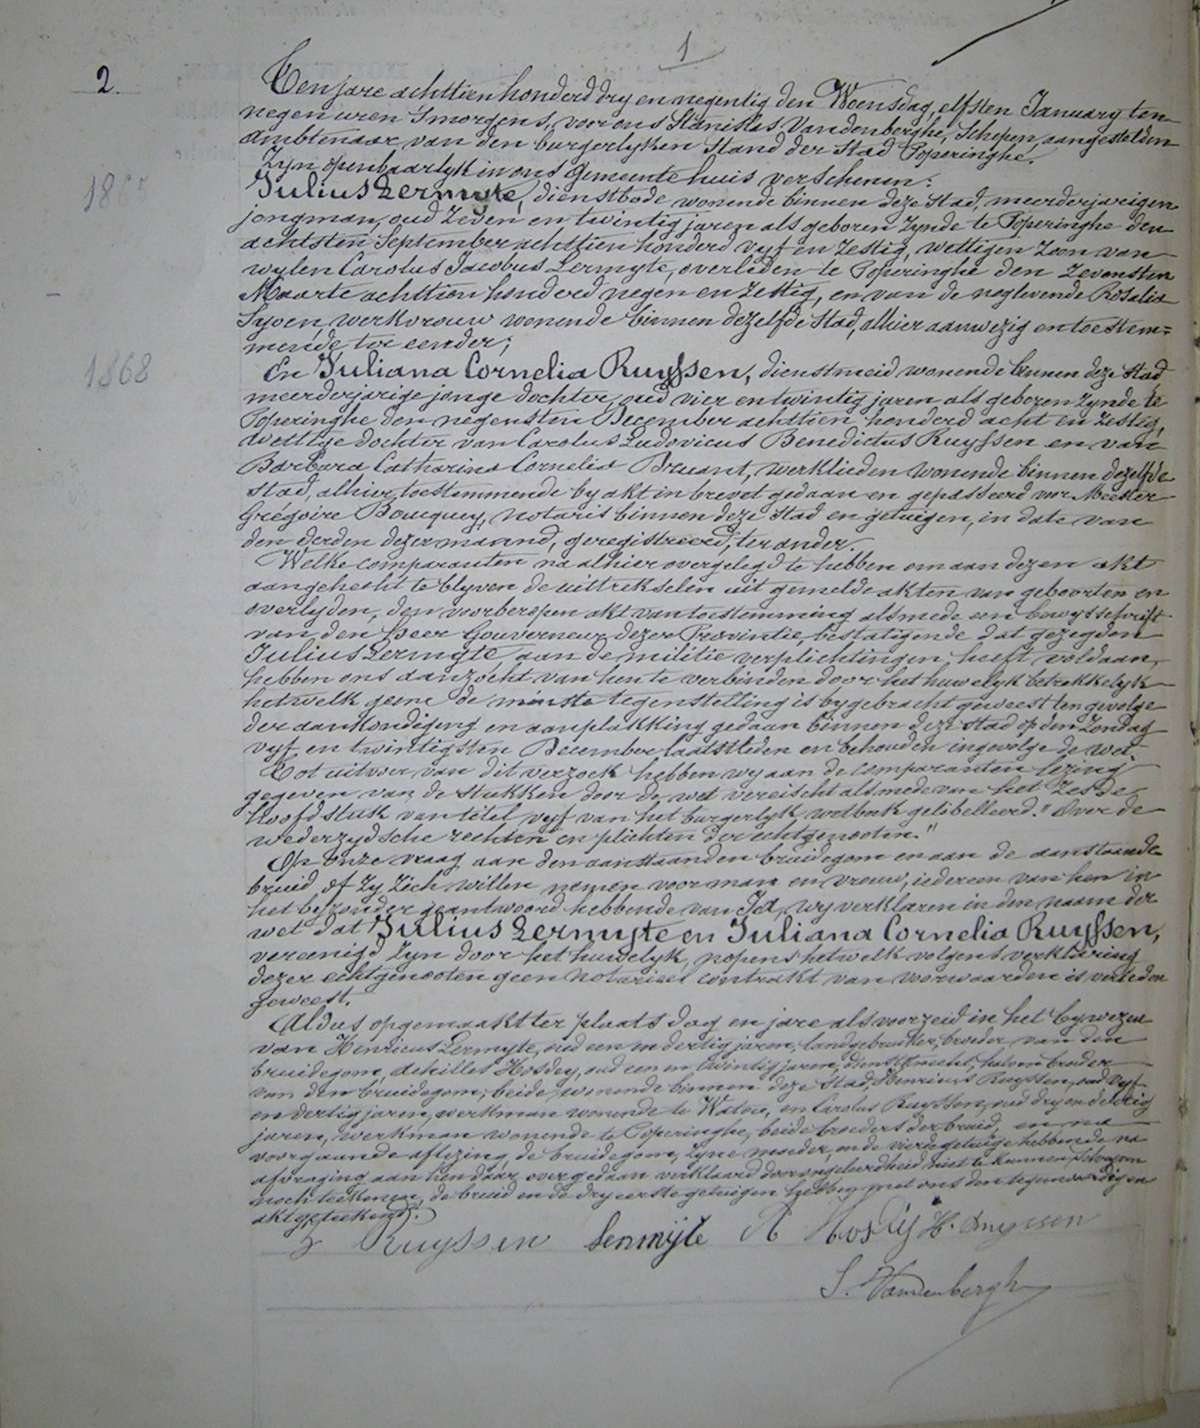 1
2.
Ten jare achttien honderd dry en negentig den Woensdag, elfsten January ten
negen uren 's morgens, voor ons Stanislas Vandenberghe, Schepen, aangestelden
ambtenaar van den burgerlyken Stand der Stad Poperinghe.
Zyn openbaarlyk in ons Gemeentehuis verschenen:
1865
Julius Lermyte, dienstbode wonende binnen deze Stad, meerderjarigen
jongman, oud zeven en twintig jaren als geboren zynde te Poperinghe den
achtsten September achttien honderd vyf en zestig, wettigen zoon van
wylen Carolus Jacobus Lermyte, overleden te Poperinghe den zevensten
Maarte achttien honderd negen en zestig, en van de noglevende Rosalia
Syoen, werkvrouw wonende binnen dezelfde Stad, alhier aanwezig en toestem=
mende ter eender;
1868
En Juliana Cornelia Ruyssen, dienstmeid wonende binnen deze Stad,
meerderjarige jonge dochter, oud vier en twintig jaren als geboren zynde te
Poperinghe den negensten December achttien honderd acht en zestig,
wettige dochter van Carolus Ludovicus Benedictus Ruyssen en van
Barbara Catharina Cornelia Bruant, werklieden wonende binnen dezelfde
stad, alhier toestemmende by akt in brevet gedaan en gepasseerd voor Meester
Grégoire Boucquey, notaris binnen deze Stad en getuigen, in date van
den derden dezer maand, geregistreerd, ter ander.
Welke comparanten na alhier overgelegd te hebben om aan dezen akt
aangehecht te blyven de uittrekselen uit gemelde akten van geboorten en
overlyden, den voorberoepen akt van toestemming alsmede een bewysschrift
van den Heer Gouverneur dezer Provintie, bestatigende dat gezegden
Julius Lermyte, aan de militie verplichtingen heeft voldaan,
hebben ons aanzocht van hen te verbinden door het huwelyk betrekkelyk
hetwelk geene de minste tegenstelling is bygebracht geweest ten gevolge
der aankondiging en aanplakking gedaan binnen deze Stad op den Zondag
vyf en twintigsten December laatstleden en behouden ingevolge de wet.
Tot uitvoer van dit verzoek hebben wy aan de Comparanten lezing
gegeven van de stukken door de wet vereischt alsmede van het Zesde
Hoofdstuk van titel vyf van het burgerlyk wetboek gelibelleerd "Over de
wederzydsche rechten en plichten der echtgenooten."
Op onze vraag aan den aanstaanden bruidegom en aan de aanstaande
bruid of zy zich willen nemen voor man en vrouw, iedereen van hen in
het byzonder geantwoord hebbende van Ja, wy verklaren in den naam der
wet dat Julius Lermyte en Juliana Cornelia Ruyssen,
vereenigd zyn door het huwelyk, nopens hetwelk volgens verklaring
dezer echtgenooten geen notarieel contrakt van voorwaarden is verleden
geweest.
Aldus opgemaakt ter plaats dag en jare als voorzeid in het bywezen
van Henricus Lermyte, oud een en dertig jaren, landgebruiker, broeder van den
bruidegom, Achilles Hosdey, oud een en twintig jaren, dienstknecht, halven broeder
van den bruidegom; beide wonende binnen deze Stad, Henricus Ruyssen, oud vyf
en dertig jaren, werkman wonende te Watou, en Carolus Ruyssen, oud dry en dertig
jaren, werkman wonende te Poperinghe, beide broeders der bruid, en na
voorgaande aflezing, de bruidegom, zyne moeder, en de vierde getuige hebbende na
afvraging aan hen daar over gedaan verklaard door ongeleerdheid niet te kunnen schryven
noch teekenen, de bruid en de dry eerste getuigen hebben met ons den tegenwoordigen
akt geteekend.
J Ruyssen Lermyte A Hosdey H. Ruyssen
S. Vandenberghe